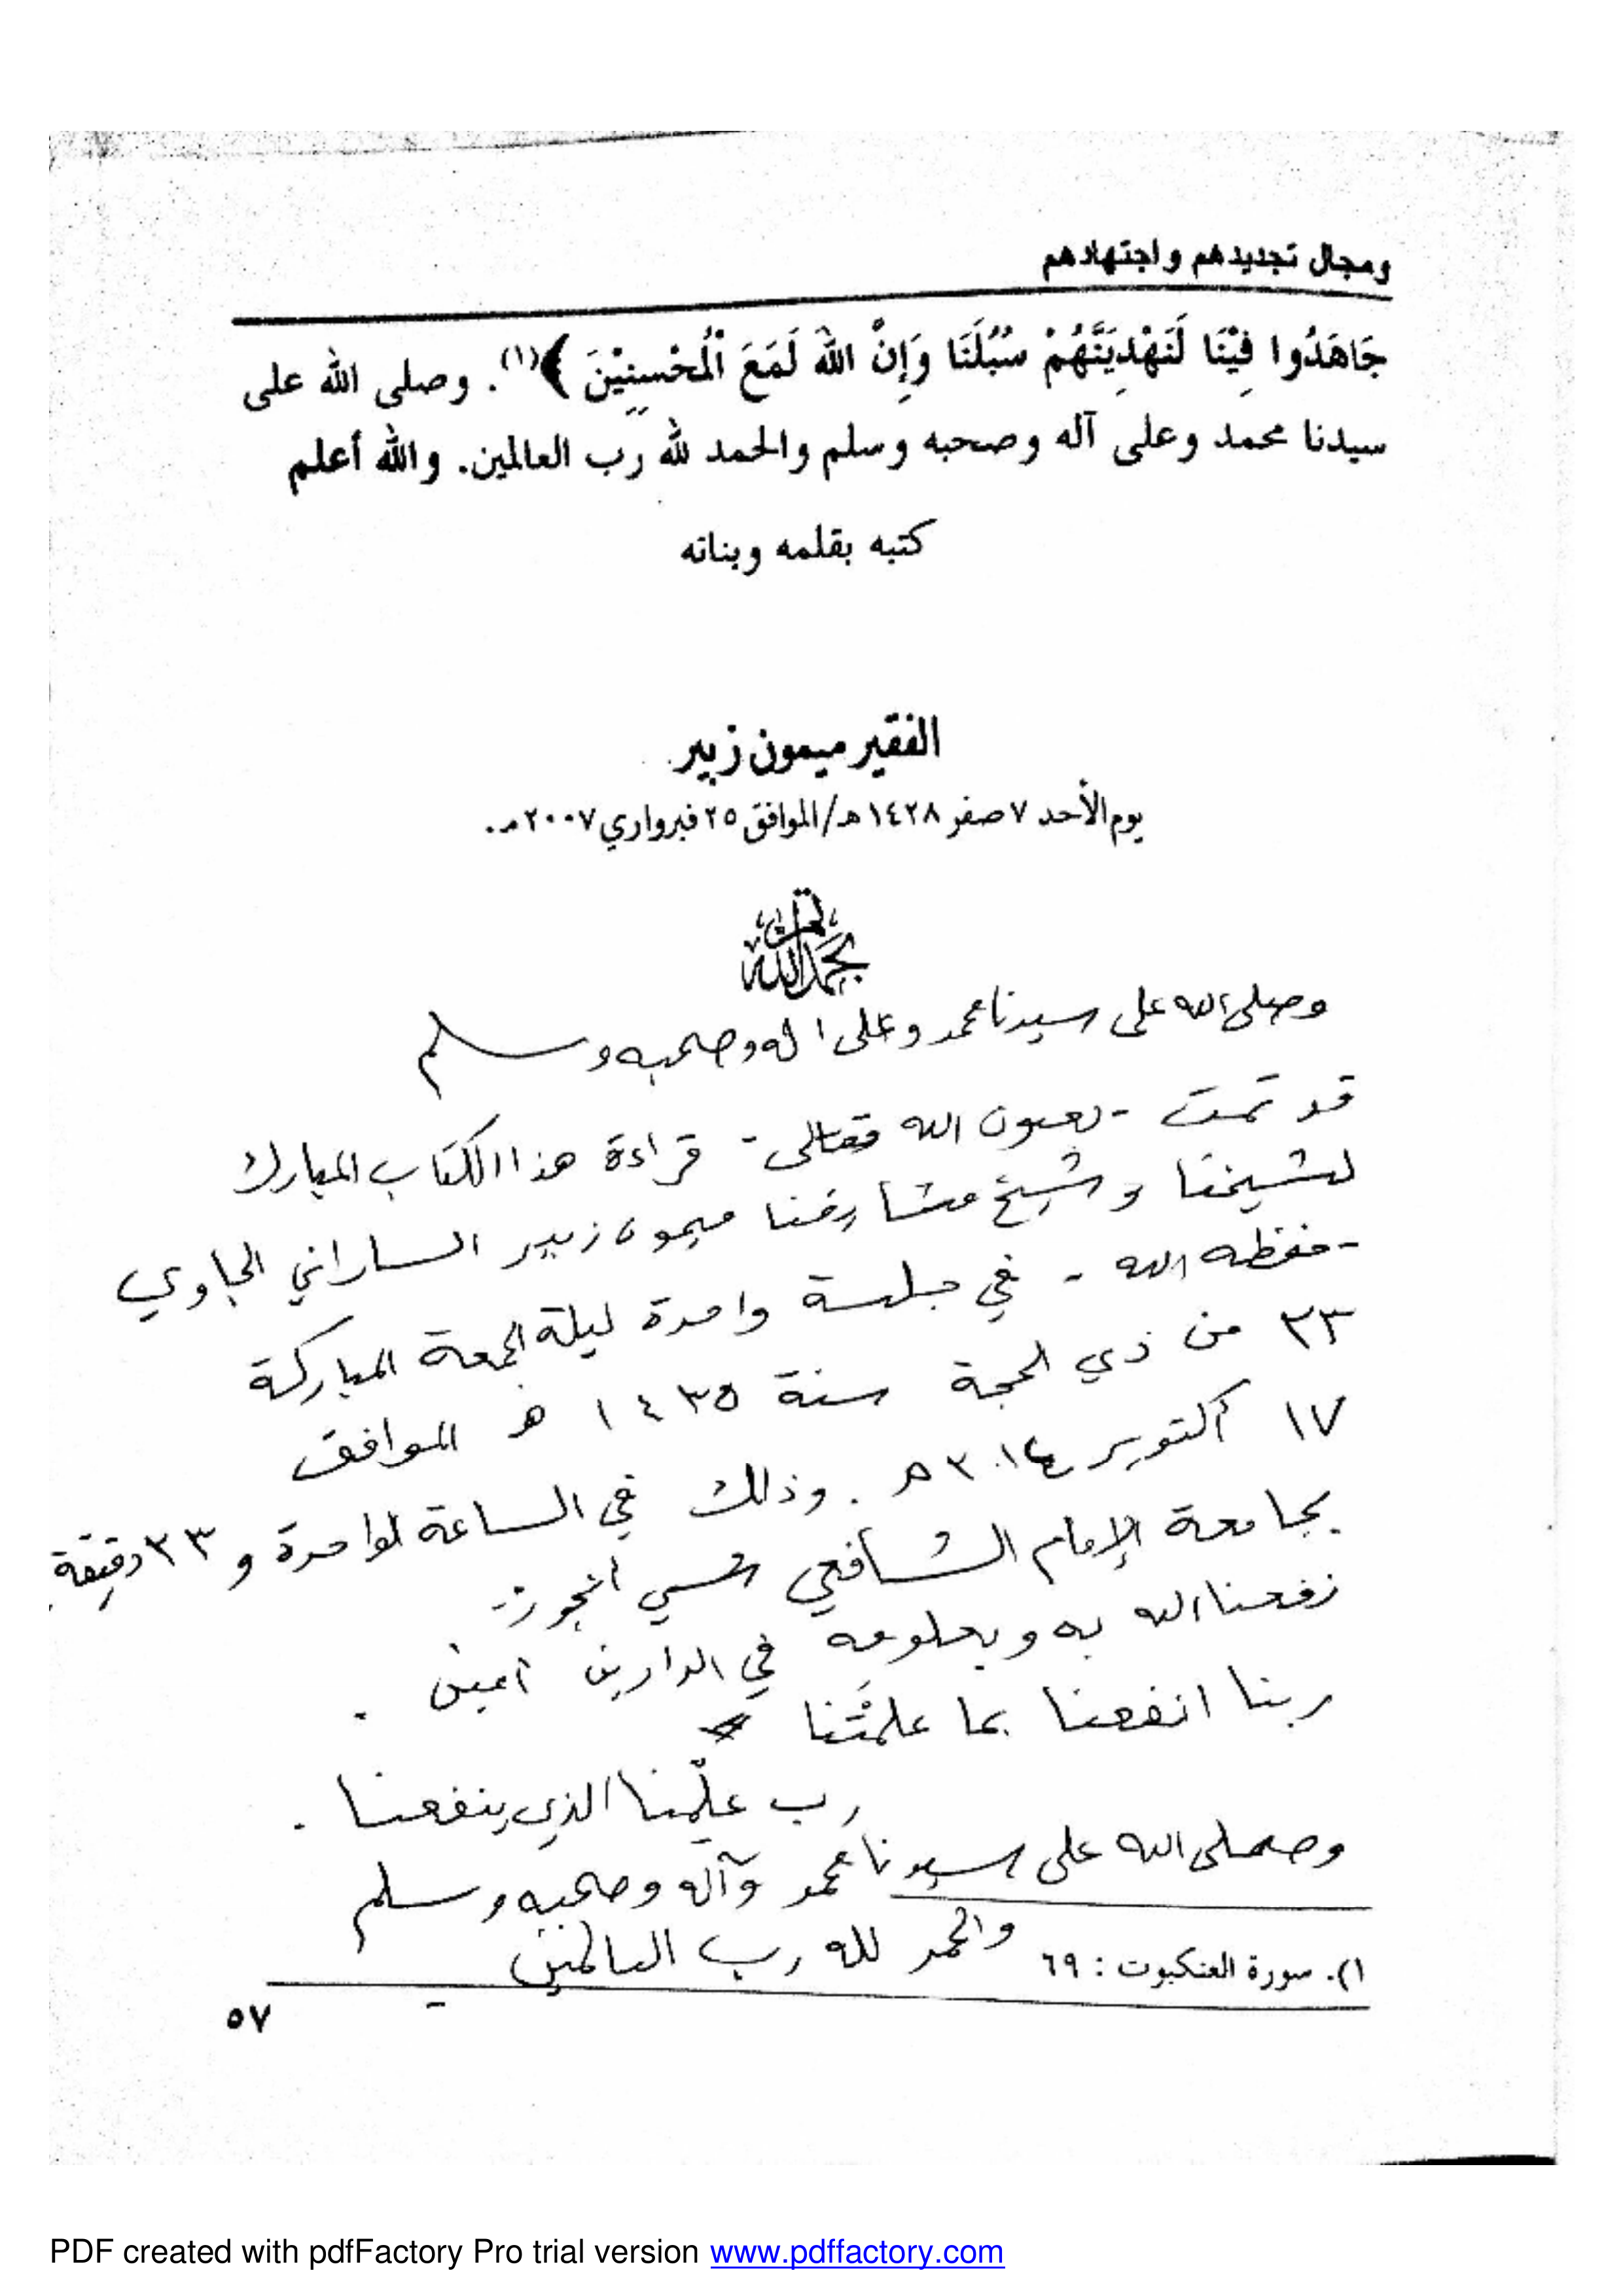 ومجال تجديدهم واجتهادهم
جَاهَدُوا فِيْنَا لَنَهْدِيَنَّهُمْ سُبُلَنَا وَإِنَّ اللّٰهَ لَمَعَ الْمُحْسِنِيْنَ ﴾(١). وصلى الله على
سيدنا محمد وعلى آله وصحبه وسلم والحمد لله رب العالمين. والله أعلم
كتبه بقلمه وبنانه
الفقير ميمون زبير
يوم الأحد ٧ صفر ١٤٢٨ هـ/الموافق ٢٥ فبرواري ٢٠٠٧ مـ.
تمت بحمد الله
وصلى الله على سيدنا محمد وعلى اله وصحبه وسلم
قد تمت - بعون الله تعالى - قراءة هذا الكتاب المبارك
لشيخنا وشيخ مشايخنا ميمون زبير الساراني الجاوي
- حفظه الله - في جلسة واحدة ليلة الجمعة المباركة
٢٣ من ذي الحجة سنة ١٤٣٥ هـ الموافق
١٧ أكتوبر ٢٠١٤ مـ . وذلك في الساعة لواحدة و ٢٣ دقيقة
بجامعة الإمام الشافعي
نفعنا الله به وبعلومه في الدارين آمين .
ربنا انفعنا بما علمتَنا
رب علّمنا الذي ينفعنا .
وصلى الله على سيدنا محمد وآله وصحبه وسلم
والحمد لله رب العالمين
١). سورة العنكبوت : ٦٩
٥٧
PDF created with pdfFactory Pro trial version www.pdffactory.com